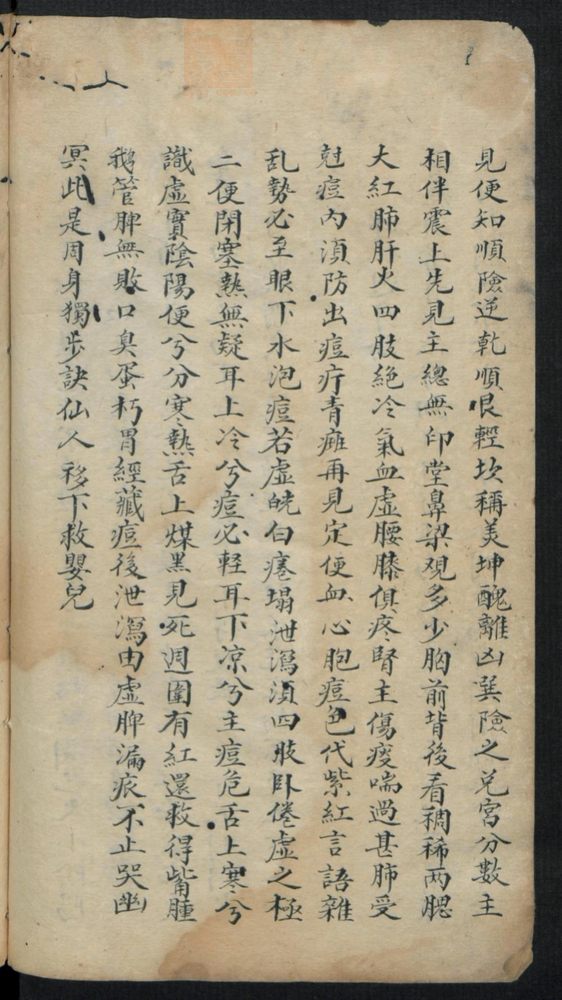 見便知順險逆乾順艮輕坎稱美坤醜離凶巽險之兌宮分數主
相伴震上先見主總無印堂鼻梁观多少胸前背後看稠稀兩腮
大紅肺肝火四肢絕冷氣血虛腰膝俱疼腎主傷痰喘過甚肺受
尅痘內湏防出痘疔青癍再見定便血心胞痘色代紫紅言語雜
乱勢必至眼下水泡痘若虛皖白塌泄瀉湏四肢卧倦虛之極
二便閉塞熱無疑耳上冷兮痘必輕耳下凉兮主痘危舌上寒兮
識虛實陰陽便兮分寒熱舌上煤黑見死週圍有紅還救得觜腫
鵝管脾無敗口臭蛋朽胃經藏痘後泄瀉由虛脾漏痕不止哭幽
冥此是周身獨步訣仙人移下救嬰兒